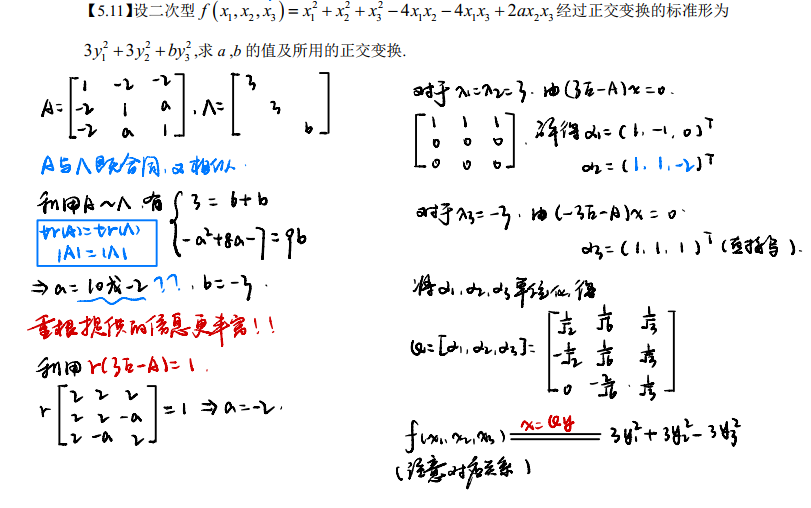 【5.11】设二次型 f(x₁,x₂,x₃)=x₁²+x₂²+x₃²−4x₁x₂−4x₁x₃+2ax₂x₃经过正交变换的标准形为
3y₁²+3y₂²+by₃²,求 a,b 的值及所用的正交变换.
A=[1 -2 -2; -2 1 a; -2 a 1], Λ=[3; 3; b]
A与Λ既合同,又相似.
利用A~Λ.有 {3=6+b
tr(A)=tr(Λ)
|A|=|Λ|
-a²+8a-7=9b
⇒ a=10或-2??, b=-3.
重根提供的信息更丰富!!
利用r(3E-A)=1.
r[2 2 2; 2 2 -a; 2 -a 2]=1 ⇒ a=-2.
对于λ₁=λ₂=3.由(3E-A)x=0.
[1 1 1; 0 0 0; 0 0 0].解得α₁=(1,-1,0)ᵀ
α₂=(1,1,-2)ᵀ
对于λ₃=-3.由(-3E-A)x=0.
α₃=(1,1,1)ᵀ(直接写).
将α₁,α₂,α₃单位化得
Q=[α₁,α₂,α₃]=[1/√2 1/√6 1/√3; -1/√2 1/√6 1/√3; 0 -2/√6 1/√3]
f(x₁,x₂,x₃) x=Qy 3y₁²+3y₂²-3y₃²
(注意对应关系)